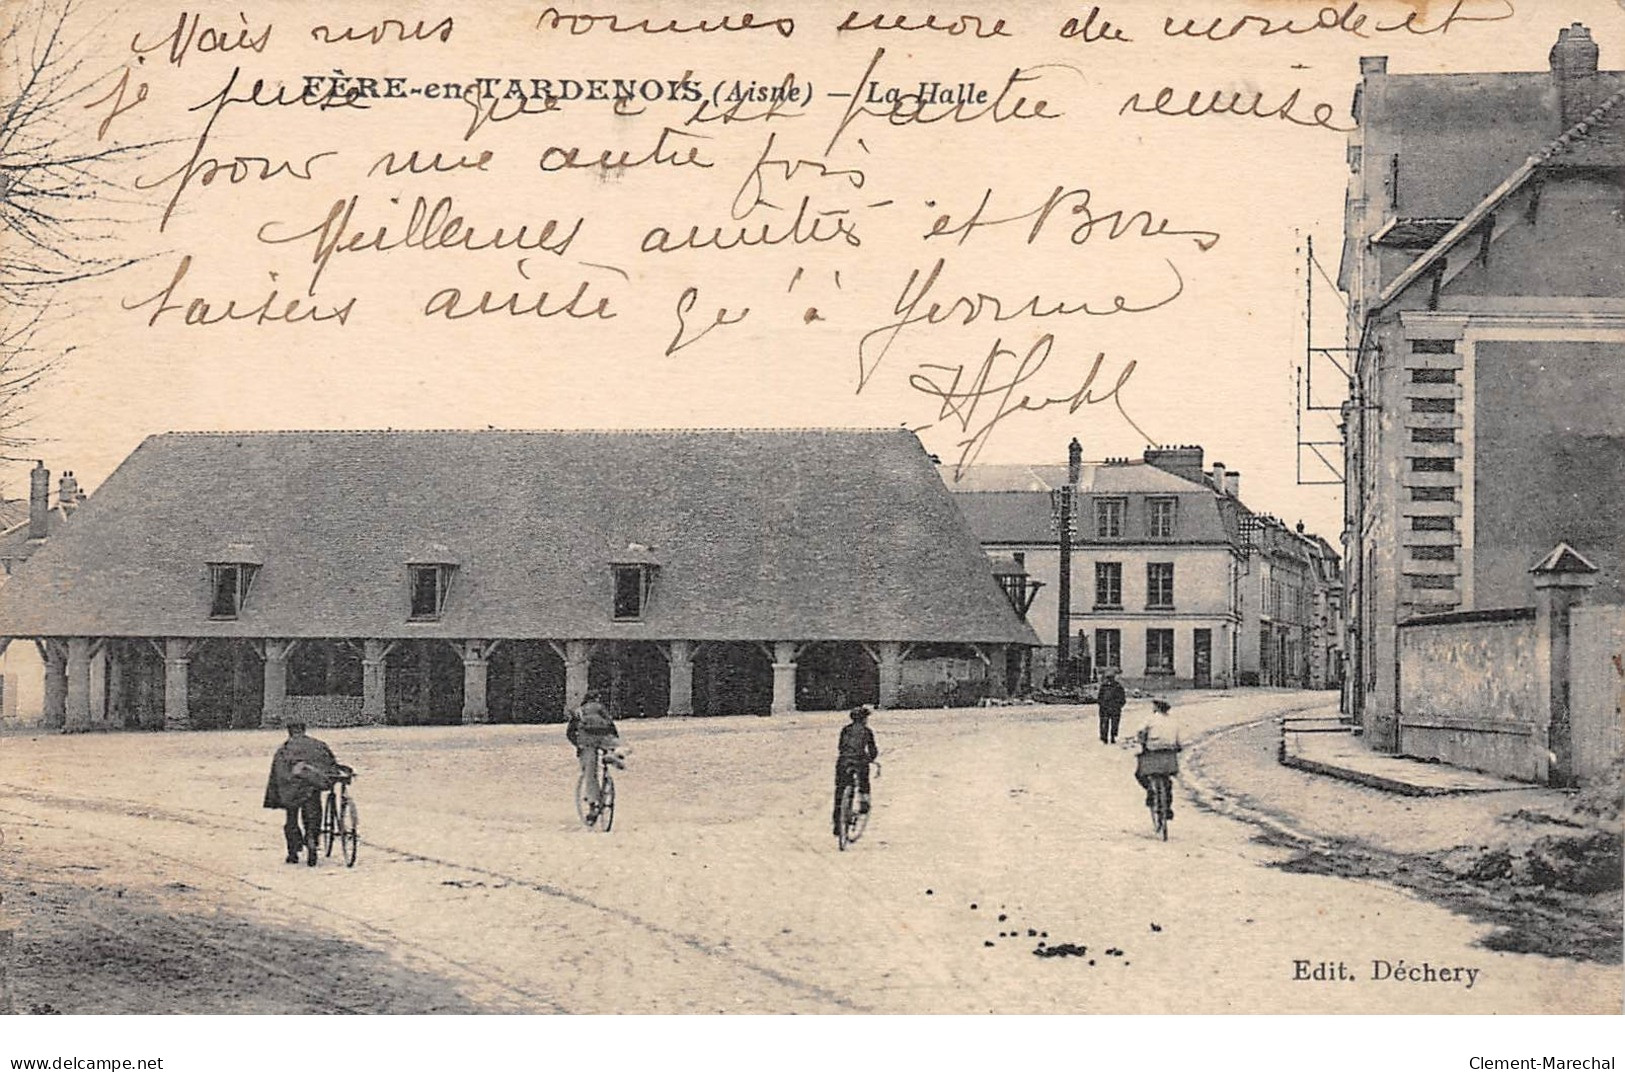 Mais nous sommes encore du monde et
je pense que c'est partie remise
FÈRE-en-TARDENOIS (Aisne) — La Halle
pour une autre fois
Meilleures amitiés et Bons
baisers ainsi qu'à Yvonne
Edit. Déchery
www.delcampe.net
Clement-Marechal